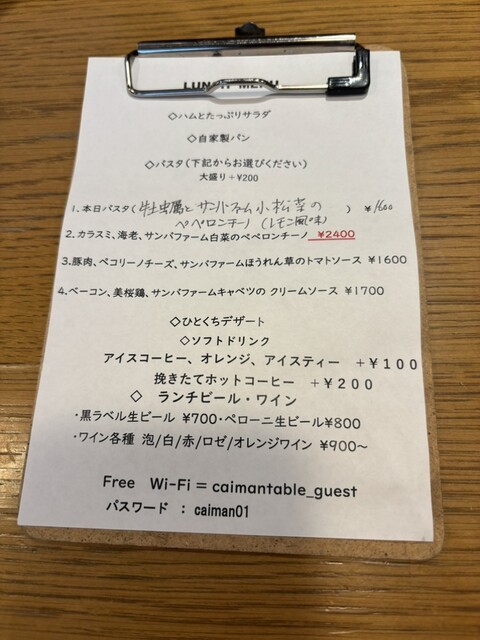 LUNCH MENU
◇ハムとたっぷりサラダ
◇自家製パン
◇パスタ(下記からお選びください)
大盛り+¥200
1.本日パスタ(牡蠣とサンバファーム小松菜の ) ¥1600
ペペロンチーノ(レモン風味)
2.カラスミ、海老、サンバファーム白菜のペペロンチーノ ¥2400
3.豚肉、ペコリーノチーズ、サンバファームほうれん草のトマトソース ¥1600
4.ベーコン、美桜鶏、サンバファームキャベツの クリームソース ¥1700
◇ひとくちデザート
◇ソフトドリンク
アイスコーヒー、オレンジ、アイスティー +¥100
挽きたてホットコーヒー +¥200
◇ ランチビール・ワイン
・黒ラベル生ビール ¥700・ペローニ生ビール¥800
・ワイン各種 泡/白/赤/ロゼ/オレンジワイン ¥900~
Free Wi-Fi = caimantable_guest
パスワード : caiman01